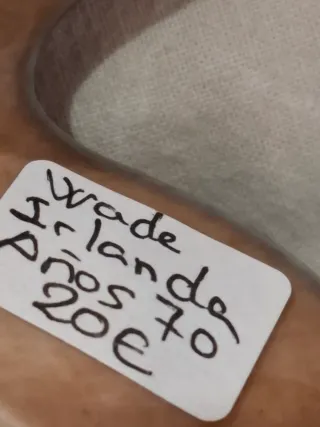 Wade
Irlanda
Años 70
20€